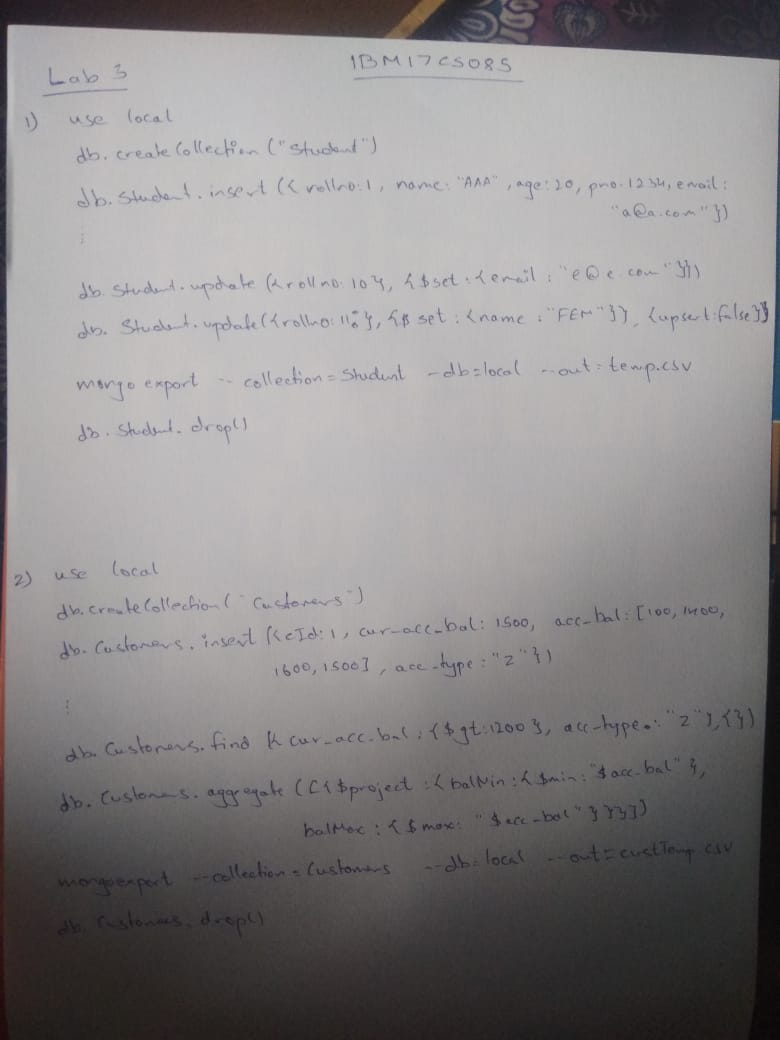 1BM17CS085
Lab 3
1) use local
db.createCollection("Student")
db.Student.insert({rollno:1, name:"AAA", age:20, pno:1234, email:
"a@a.com"})
⋮
db.Student.update({rollno:10}, {$set:{email:"e@e.com"}})
db.Student.update({rollno:11}, {$set:{name:"FEM"}}, {upsert:false}}
mongo export -- collection=Student -db=local --out=temp.csv
db.Student.drop()
2) use local
db.createCollection("Customers")
db.Customers.insert({cId:1, cur_acc_bal:1500, acc_bal:[100, 1400,
1600, 1500], acc_type:"z"})
⋮
db.Customers.find({cur_acc_bal:{$gt:1200}, acc_type:"z"},{})
db.Customers.aggregate([{$project:{balMin:{$min:"$acc_bal"},
balMax:{$max:"$acc_bal"}}}])
mongoexport --collection=Customers --db=local --out=custTemp.csv
db.Customers.drop()